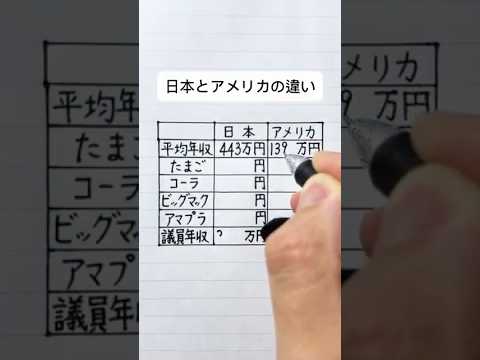 日本とアメリカの違い
日本 アメリカ
平均年収 443万円 139 万円
たまご 円
コーラ 円
ビッグマック 円
アマプラ 円
議員年収 万円
アメリカ
平均年
9 万円
たまご
コーラ
ビッグマッ
アマプラ
議員年収